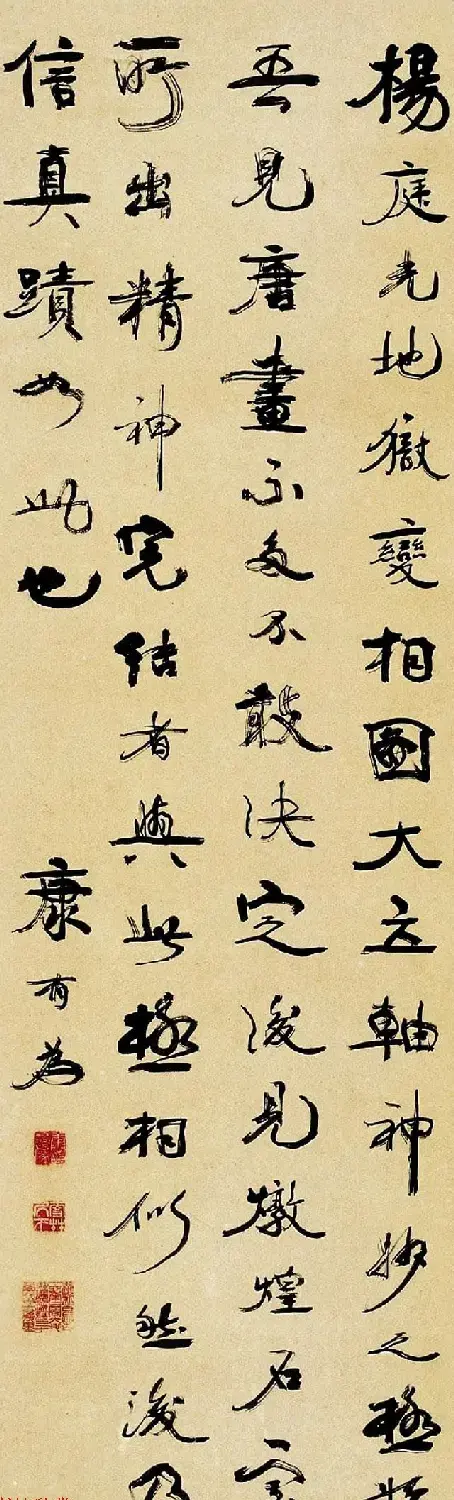 楊庭光地獄變相圖大立軸神妙之極
吾見唐畫不多不敢決定後見燉煌石室
所出精神完結者與此極相似然後乃
信真蹟如此也
康有為